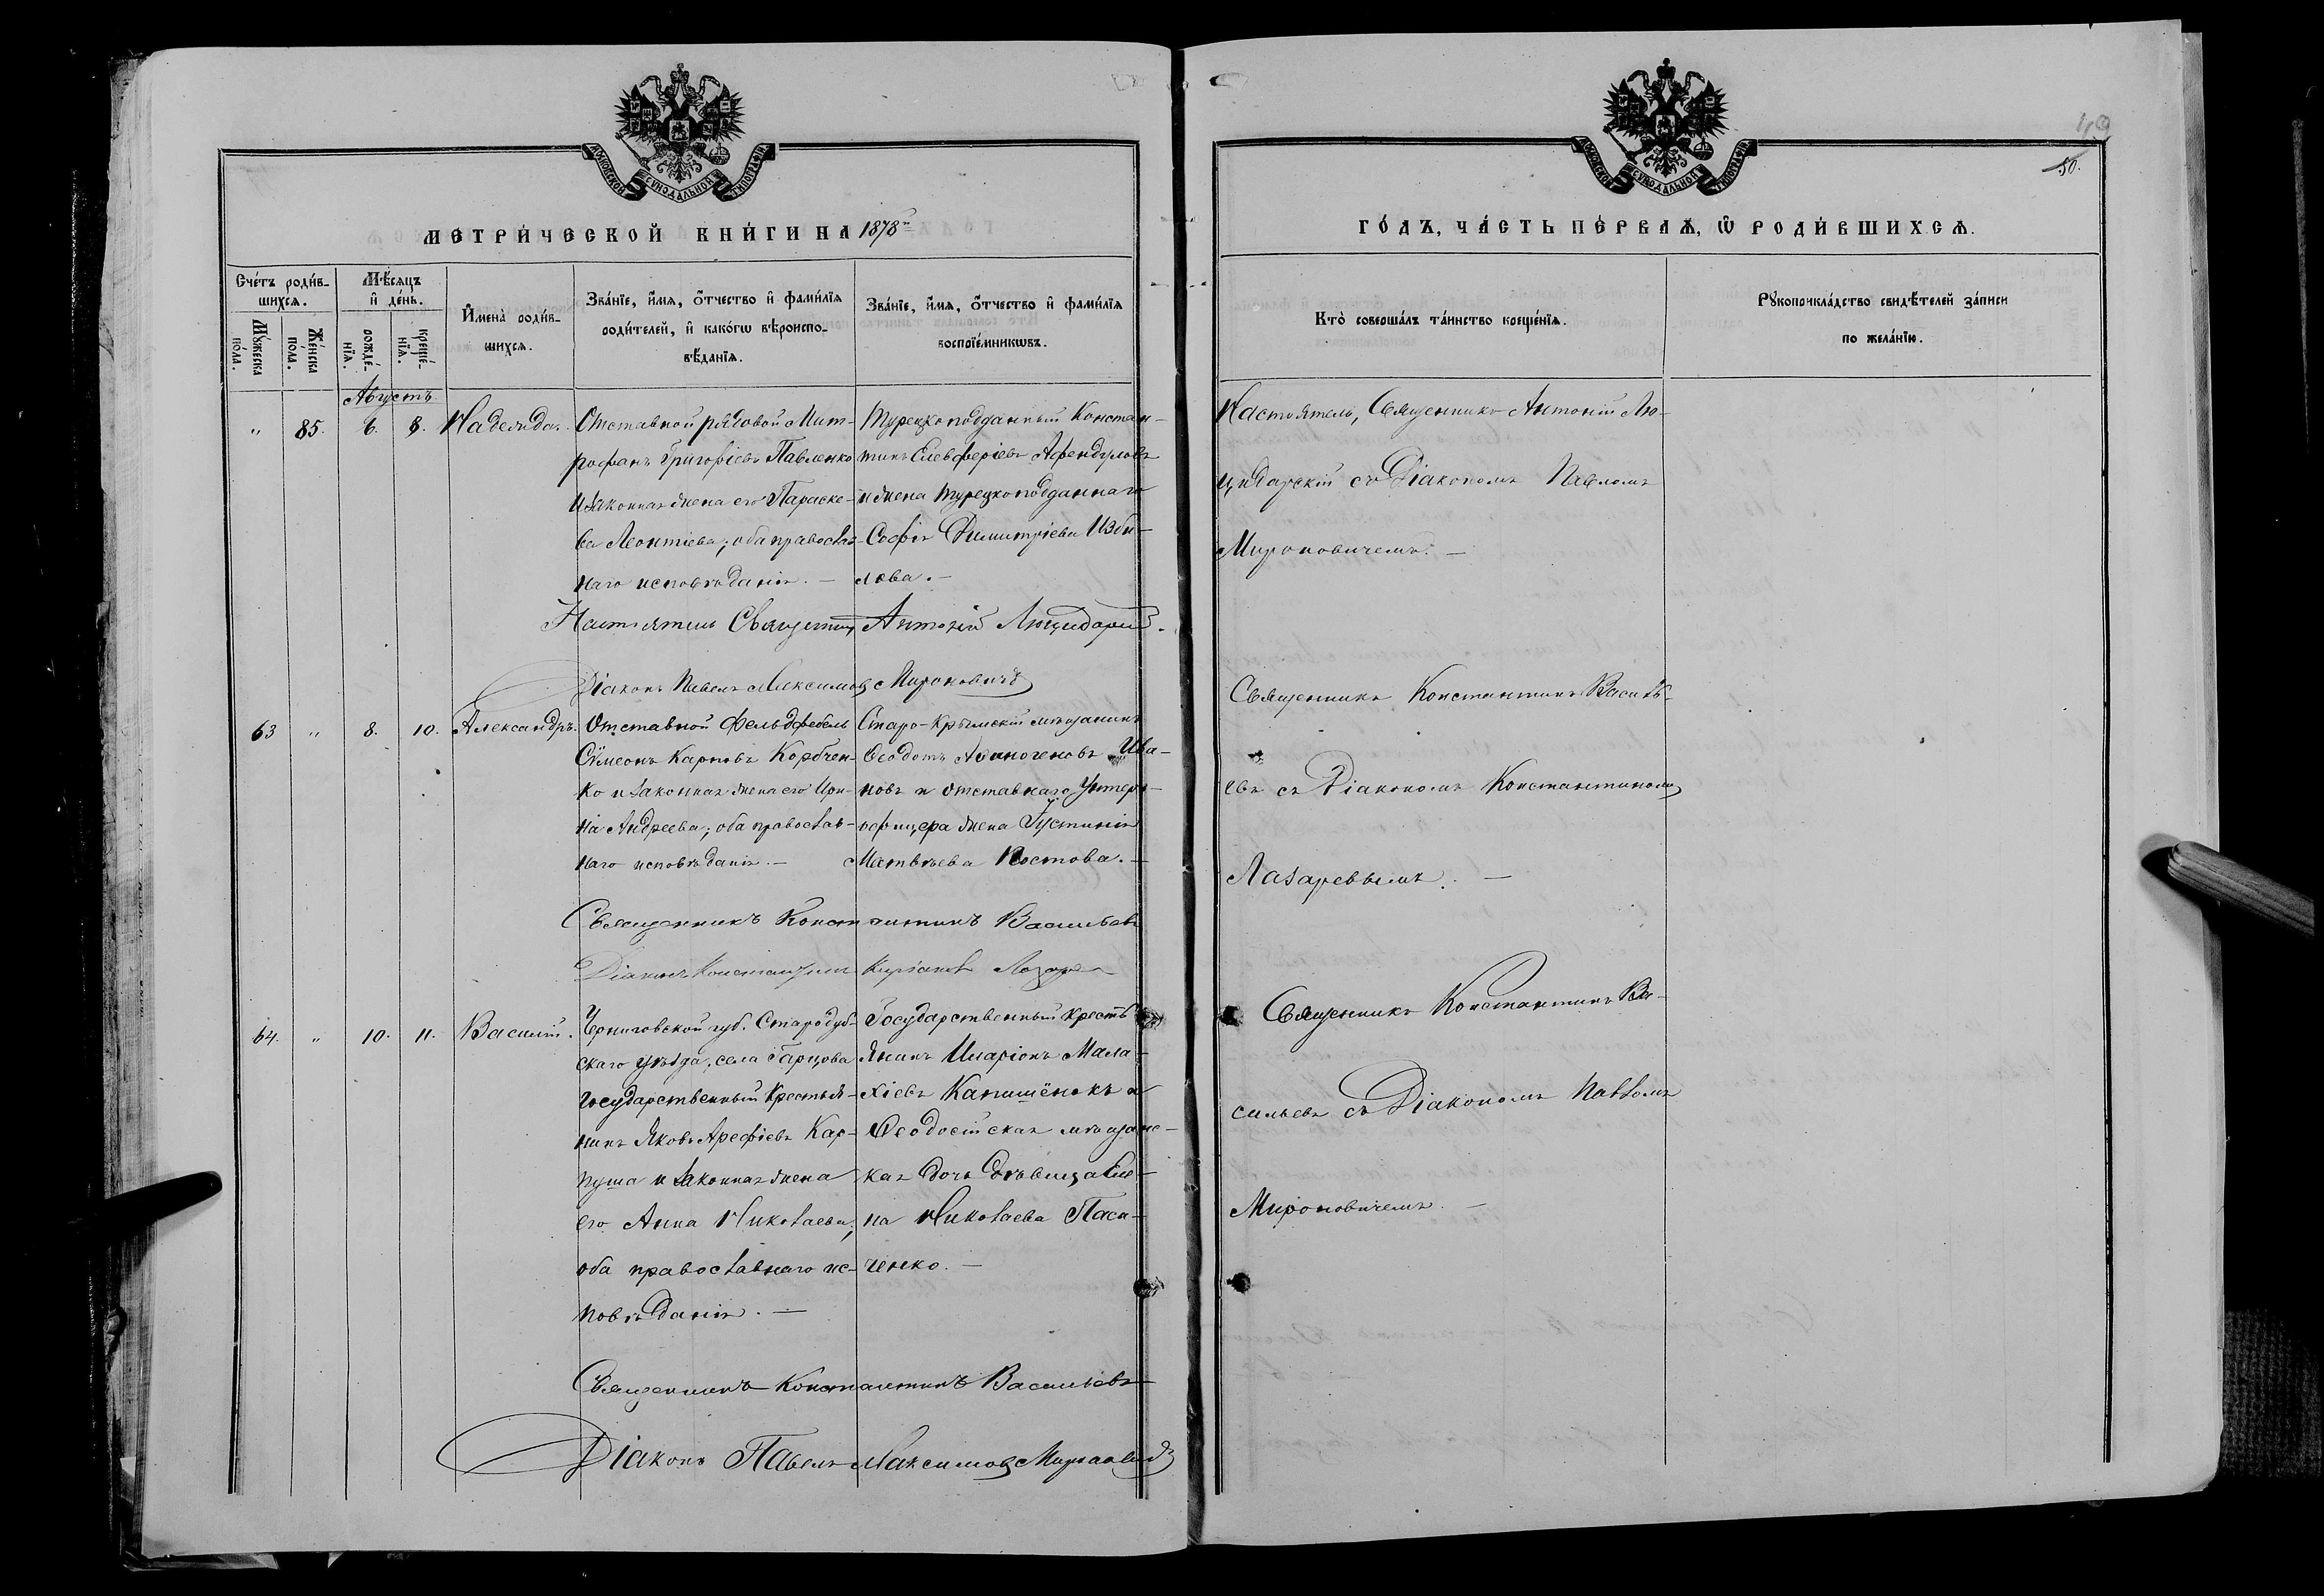 МОСКОВСКОЙ СѴНОДАЛЬНОЙ ТИПОГРАФІИ
МЕТРИ́ЧЕСКОЙ КНИ́ГИ НА 1878
Сче́тъ роди́в-
шихсѧ.
Мꙋ́жеска по́ла.
Же́нска по́ла.
Мѣ́сѧцъ
и҆ де́нь.
рожде́-
нїѧ.
креще́-
нїѧ.
И҆мена̀ роди́в-
шихсѧ.
Зва́нїе, и҆́мѧ, ѻ҆́тчество и҆ фами́лїѧ
роди́телей, и҆ како́гѡ вѣроиспо-
вѣ́данїѧ.
Зва́нїе, и҆́мѧ, ѻ҆́тчество и҆ фами́лїѧ
воспрїе́мникѡвъ.
Августъ
" 85. 6. 8. Надежда.
Отставной рядовой Мит-
рофанъ Григоріевъ Павленко
и законная жена его Параске-
ва Леонтіева; оба православ-
наго исповѣданія. —
Турецко подданный Констан-
тинъ Елевферіевъ Афендуловъ
и жена турецкоподданнаго
Софія Димитріева Изби-
лова. —
Настоятель Священникъ Антоній Люцидарскій.
Діаконъ Павелъ Максимовъ Мироновичъ
63 " 8. 10. Александръ.
Отставной Фельдфебель
Сѵмеонъ Карповъ Корбчен-
ко и законная жена его Ири-
на Андреева; оба православ-
наго исповѣданія. —
Старо-Крымскій мѣщанинъ
Ѳеодотъ Аѳиногеновъ Ива-
новъ и отставнаго Унтеръ-
офицера жена Іустинія
Матвѣева Костова. —
Священникъ Константинъ Васильевъ
Діаконъ Константинъ Лазаревъ
64. " 10. 11. Василій.
Черниговской губ. Стародуб-
скаго уѣзда, села Гарцова
государственный Крестья-
нинъ Яковъ Арефіевъ Кар-
пуша и законная жена
его Анна Николаева;
оба православнаго ис-
повѣданія. —
Государственный кресть-
янинъ Иларіонъ Мала-
хіевъ Капишёнокъ и
Ѳеодосійская мѣщанс-
кая дочь дѣвица Еле-
на Николаева Паси-
ченко. —
Священникъ Константинъ Васильевъ
Діаконъ Павелъ Максимовъ Мироновичъ
МОСКОВСКОЙ СѴНОДАЛЬНОЙ ТИПОГРАФІИ
50.
ГО́ДЪ, ЧА́СТЬ ПЕ́РВАѦ, Ѽ РОДИ́ВШИХСѦ.
Кто̀ соверша́лъ та́инство креще́нїѧ.
Рꙋкоприкла́дство свидѣ́телей за́писи
по жела́нїю.
Настоятель, Священникъ Антоній Лю-
цидарскій съ Діакономъ Павломъ
Мироновичемъ. —
Священникъ Константинъ Василь-
евъ съ Діакономъ Константиномъ
Лазаревымъ. —
Священникъ Константинъ Ва-
сильевъ съ Діакономъ Павломъ
Мироновичемъ. —